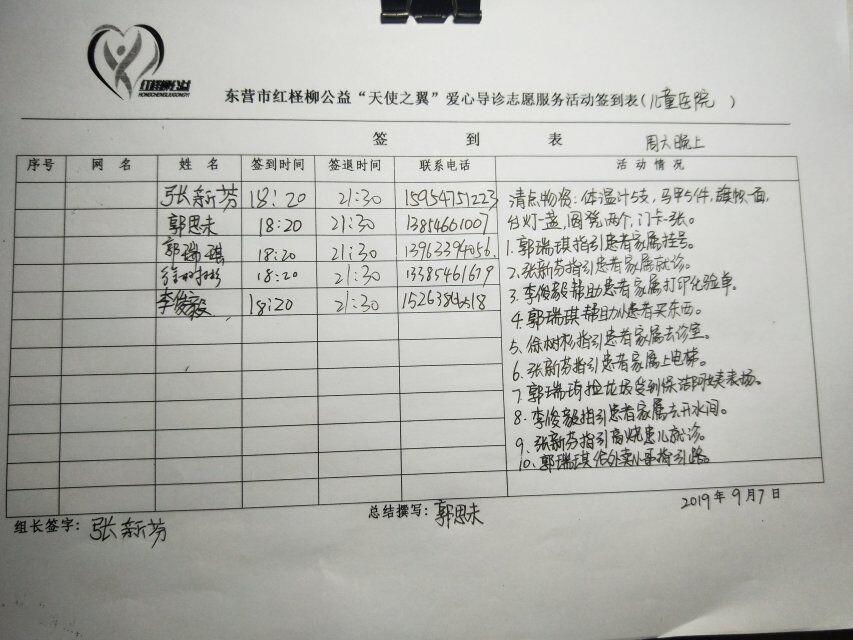 红柽柳公益
HONGCHENGLIUGONGYI
东营市红柽柳公益“天使之翼”爱心导诊志愿服务活动签到表(儿童医院)
签 到 表 周六晚上
序号 网 名 姓 名 签到时间 签退时间 联系电话 活动情况
张新芬 18:20 21:30 15954751223
郭思未 18:20 21:30 13854661007
郭瑞琪 18:20 21:30 13963394056
徐树彬 18:20 21:30 13385461679
李俊毅 18:20 21:30
清点物资:体温计5支,马甲5件,旗帜一面,
台灯一盏,圆凳两个,门卡一张。
1.郭瑞琪指引患者家属挂号。
2.张新芬指引患者家属就诊。
3.李俊毅帮助患者家属打印化验单。
4.郭瑞琪帮助小患者买东西。
5.徐树彬指引患者家属去诊室。
6.张新芬指引患者家属上电梯。
7.郭瑞琦捡垃圾受到保洁阿姨表扬。
8.李俊毅指引患者家属去开水间。
9.张新芬指引高烧患儿就诊。
10.郭瑞琪给外卖小哥指引路。
2019年9月7日
组长签字:张新芬 总结撰写:郭思未